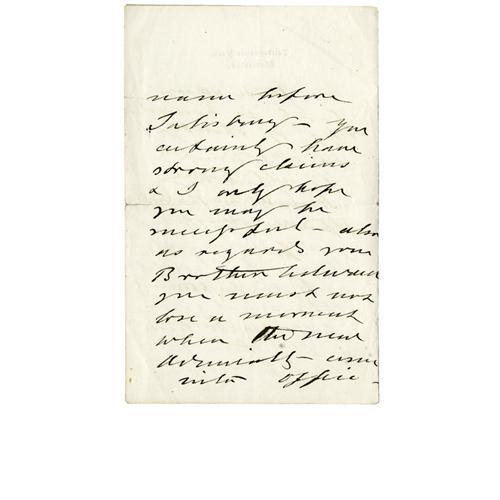 name before
Salisbury – you
certainly have
strong claims
& I only hope
you may be
successful – also
as regards your
Brother Edward
you must not
lose a moment
when the new
Admiralty come
into office –